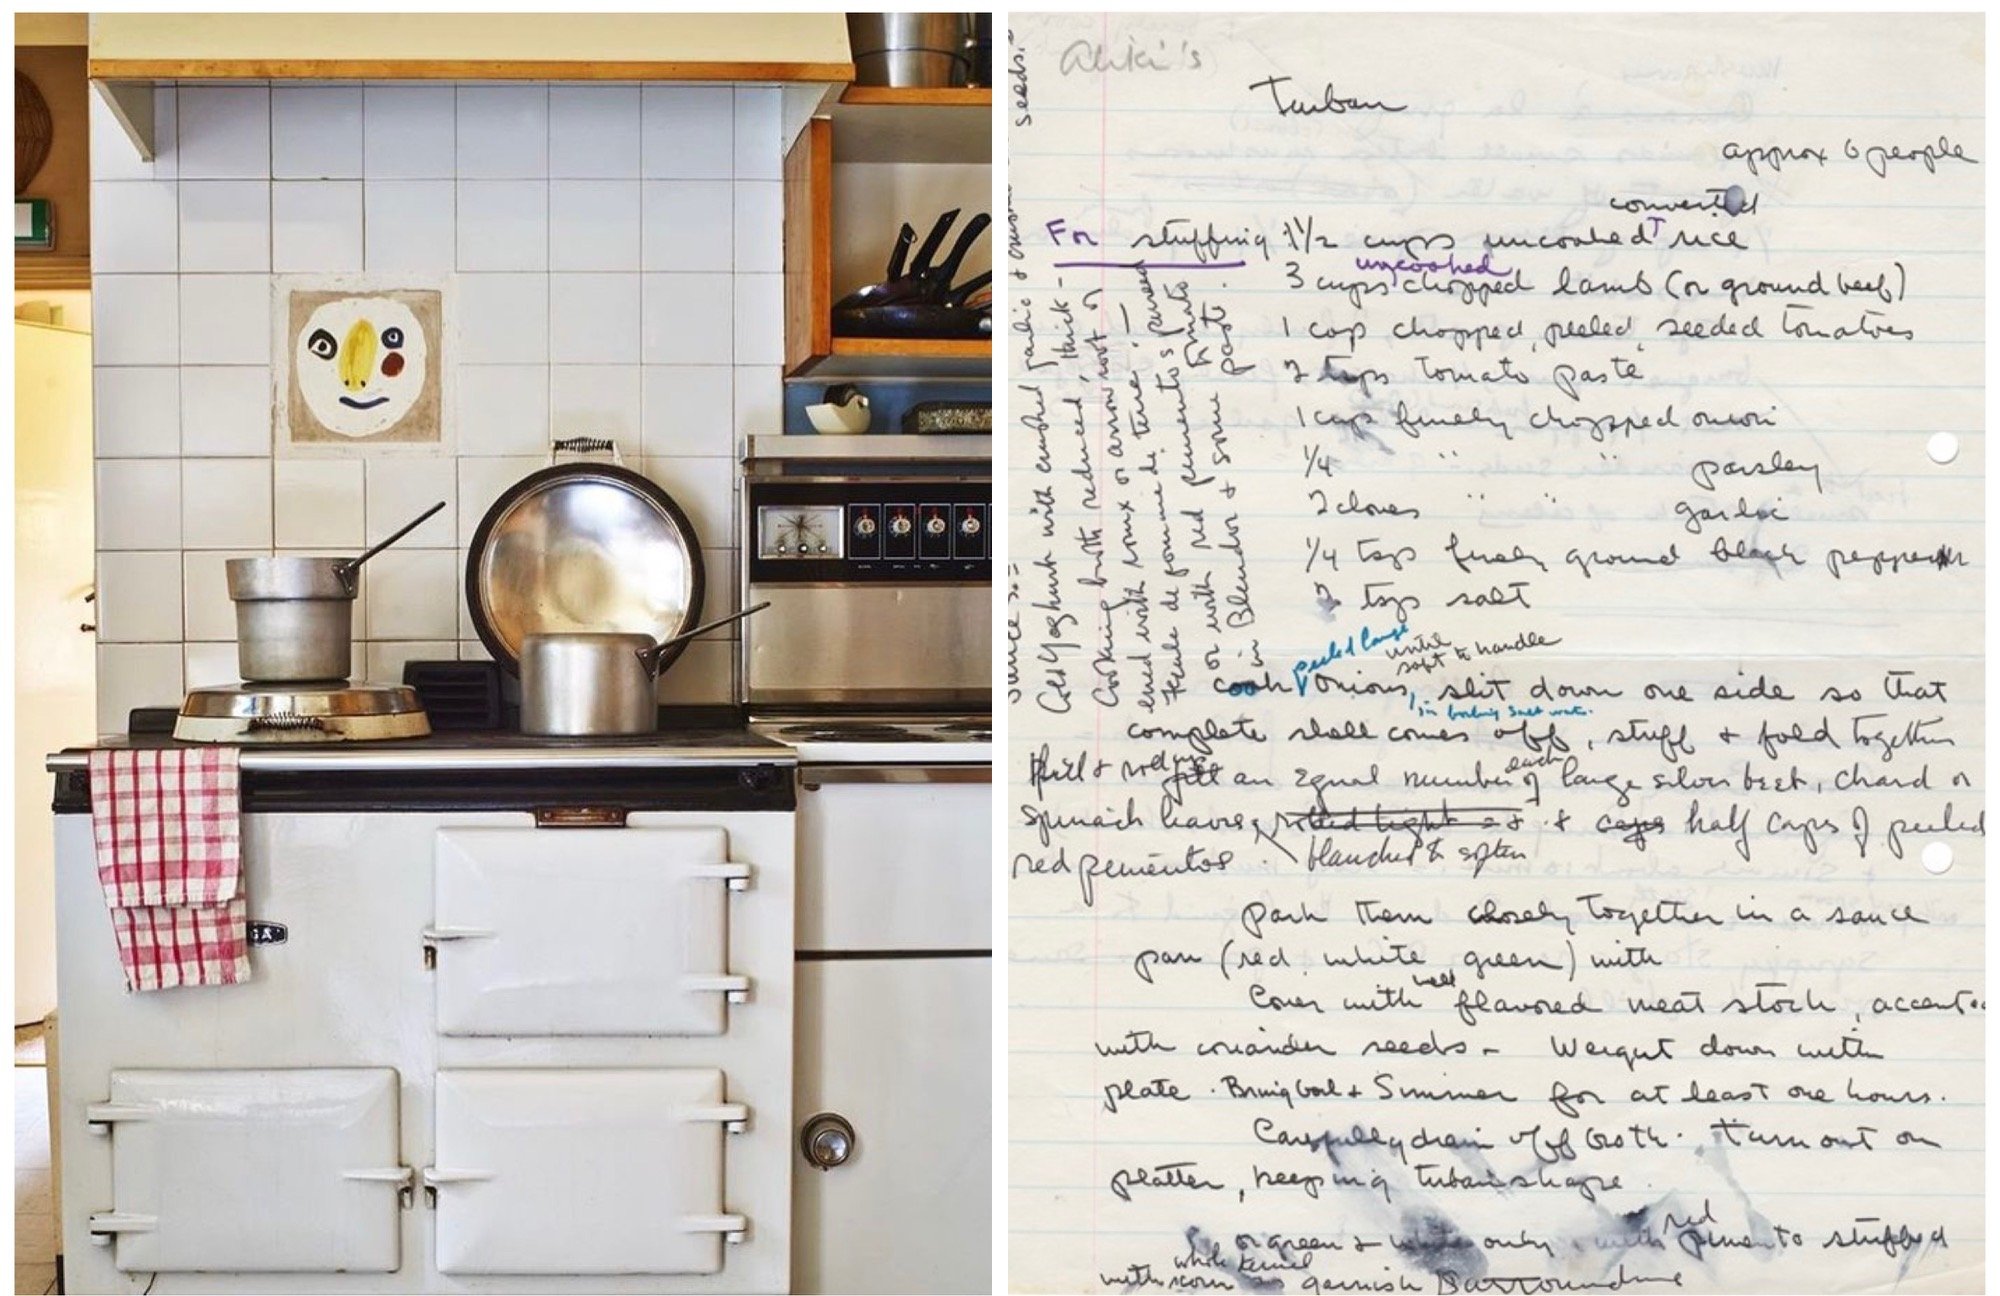 Aliki's
Turban
approx 6 people
converted
For stuffing 1 1/2 cups uncooked rice
uncooked
3 cups chopped lamb (or ground beef)
1 cup chopped, peeled, seeded tomatoes
2 tsps tomato paste
1 cup finely chopped onion
1/4 " " parsley
2 cloves " " garlic
1/4 tsps finely ground black pepper
3 tsps salt
peeled large until soft to handle
cook onions, slit down one side so that
in boiling salt water
complete shell comes off, stuff & fold together
each
fill & roll up an equal number of large silver beet, chard or
spinach leaves rolled tight & half cups of peeled
red pimentos. blanched to soften
pack them closely together in a sauce
pan (red, white, green) with
well
Cover with flavored meat stock, accented
with coriander seeds - Weight down with
plate. Bring boil & Simmer for at least one hours.
Carefully drain off broth. turn out on
platter, keeping turban shape.
red
or green & white only, with pimento stuffed
whole kernel
with corn as garnish surrounding
seeds.
Cold Yoghurt with crushed garlic &
Cooking broth reduced, thick-
ened with roux or arrow root or
fécule de pomme de terre, -
or with red pimentos pureed
in Blendor & some tomato
paste.
GA